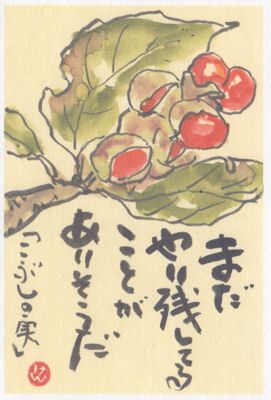 まだ
やり残してる
ことが
ありそうだ
「こぶしの実」